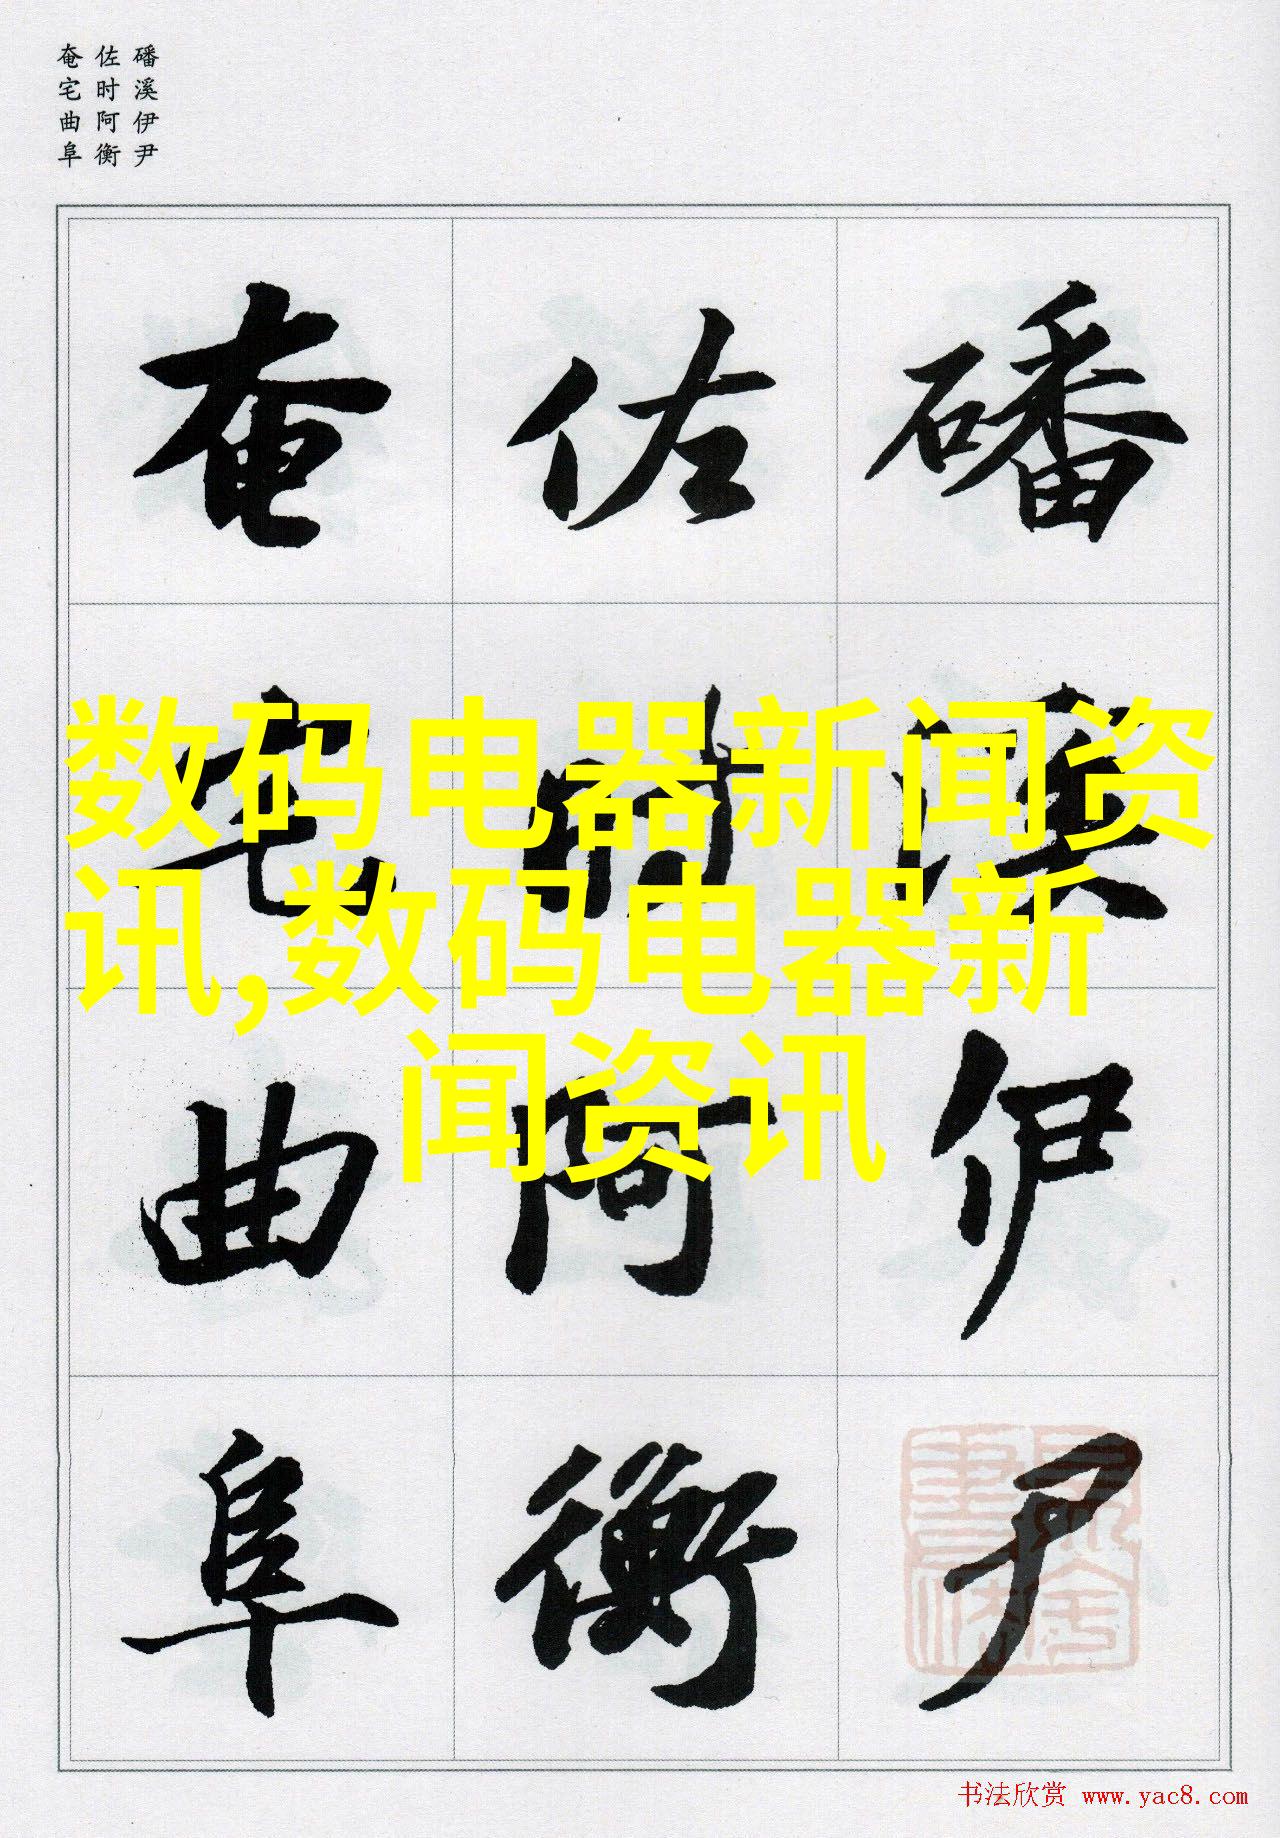 磻溪伊尹
佐时阿衡
奄宅曲阜
磻溪伊尹
佐时阿衡
奄宅曲阜
数码电器新闻资
讯,数码电器新
闻资讯
书法欣赏 www.yac8.com